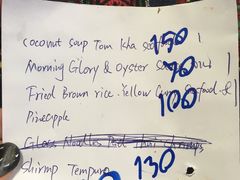 coconut soup Tom Kha 150 1
Morning Glory & Oyster 90 1
Fried Brown rice. Yellow Curry Seafood & 100 1
Pineapple
Glass Noodles Pad Thai shrimps
Shirmp Tempura 130